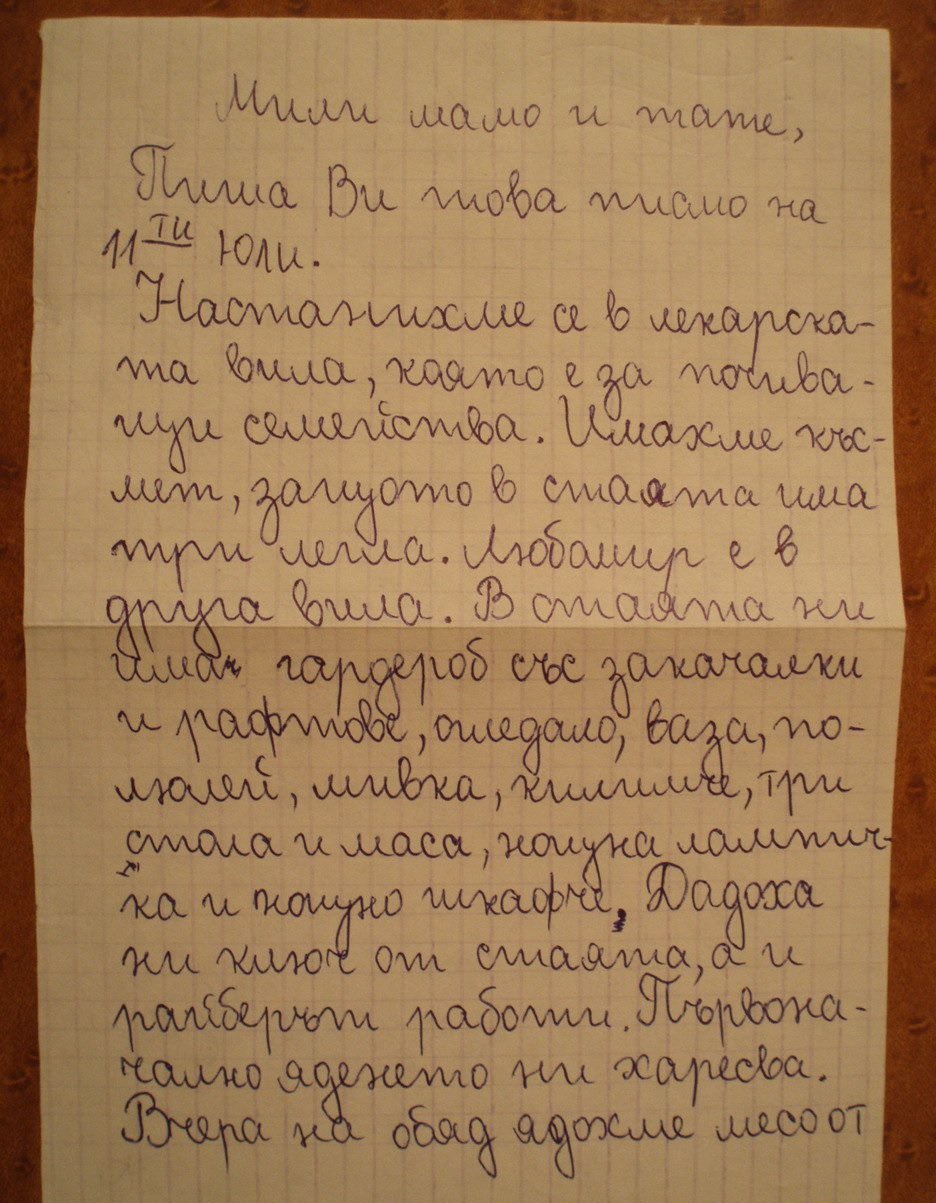 Мили мамо и тате,
Пиша Ви това писмо на
11 ТИ ЮЛИ.
Настанихме се в лекарска-
та вила, която е за почива-
щи семейства. Имахме къс-
мет, защото в стаята има
три легла. Любомир е в
друга вила. В стаята ни
има гардероб със закачалки
и рафтове, огледало, ваза, по-
люлей, мивка, килимче, три
стола и маса, нощна лампич-
ка и нощно шкафче. Дадоха
ни ключ от стаята, а и
райберът работи. Първона-
чално яденето ни харесва.
Вчера на обяд ядохме месо от